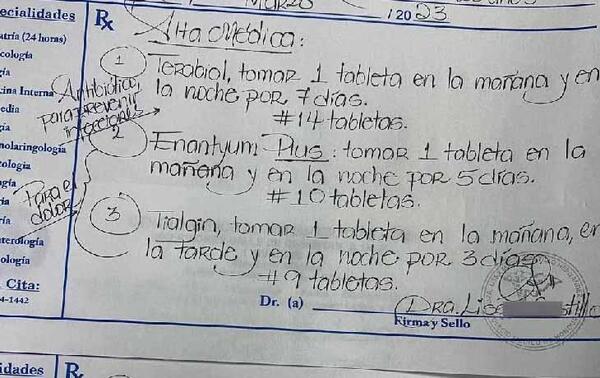 Marzo
/ 20 23
ecialidades
Rx
Alta Médica:
tría (24 horas)
cología
gía
cina Interna
edia
gía
nolaringología
cología
ogía
ría
ría
terología
ología
Cita:
4-1442
Antibiótico,
para prevenir
infecciones
Para el
dolor
1 Terabiol, tomar 1 tableta en la mañana y en
la noche por 7 días.
#14 tabletas.
2 Enantyum Plus: tomar 1 tableta en la
mañana y en la noche por 5 días.
#10 tabletas.
3 Tialgin, tomar 1 tableta en la mañana, en
la tarde y en la noche por 3 días
#9 tabletas.
Dr. (a)
Dra. Lis
stillo
Firma y Sello
idades
Rx